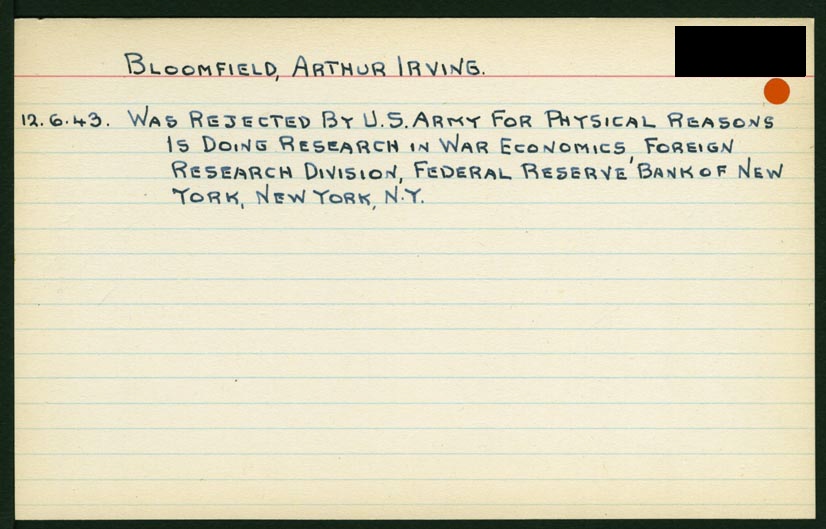 BLOOMFIELD, ARTHUR IRVING.
12.6.43. WAS REJECTED BY U.S. ARMY FOR PHYSICAL REASONS
IS DOING RESEARCH IN WAR ECONOMICS, FOREIGN
RESEARCH DIVISION, FEDERAL RESERVE BANK OF NEW
YORK, NEW YORK, N.Y.